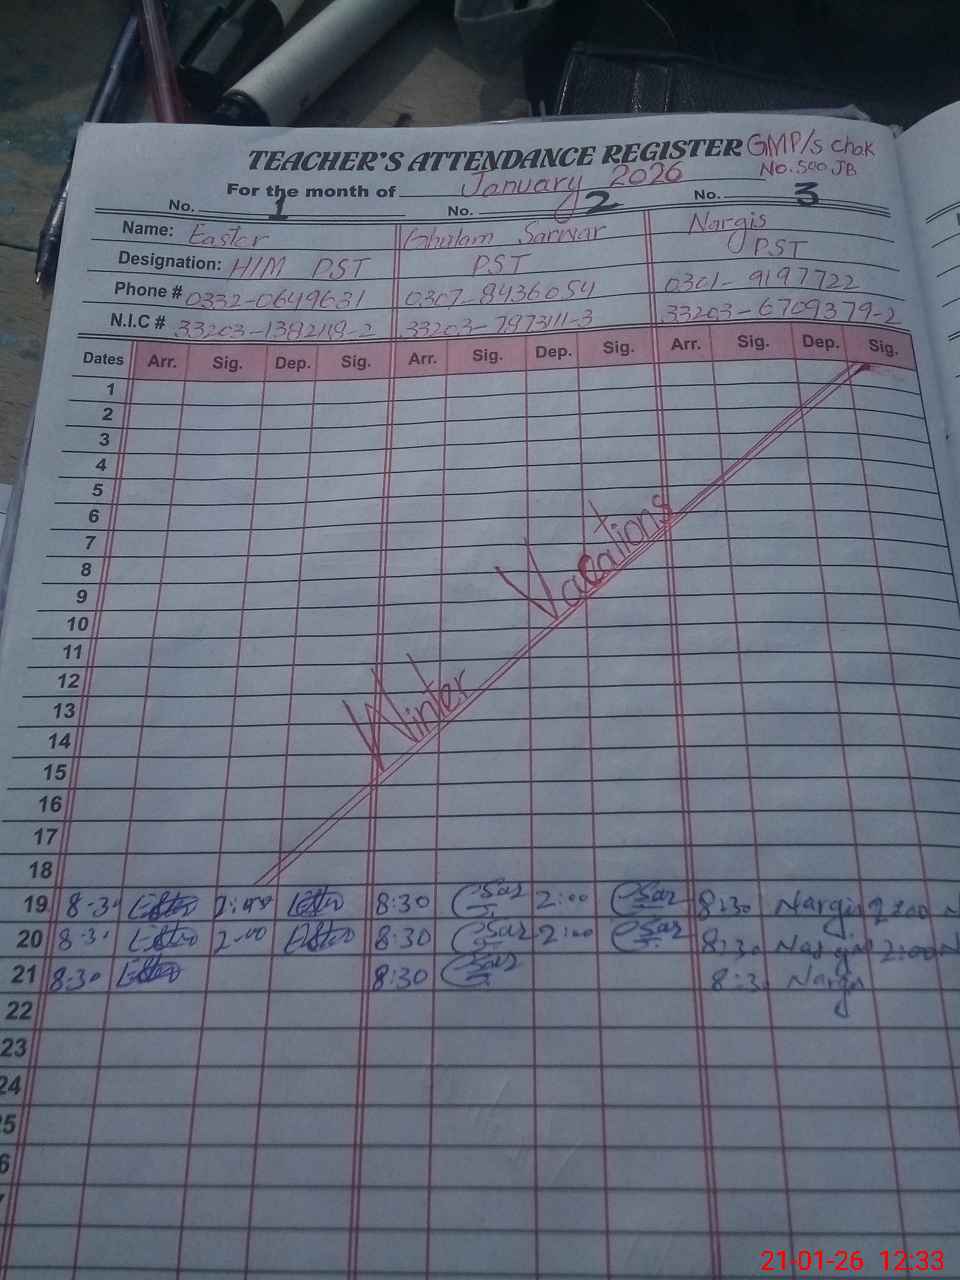 TEACHER'S ATTENDANCE REGISTER GMP/s Chak
No. 590 JB
For the month of January 2026
No. 1 No. 2 No. 3
Name: Easter Ghulam Sarwar Nargis
Designation: H/M PST PST PST
Phone # 0332-0649631 0307-8436054 0301-9197722
N.I.C # 33203-1382119-2 33203-7873111-3 33203-6709379-2
Dates Arr. Sig. Dep. Sig. Arr. Sig. Dep. Sig. Arr. Sig. Dep. Sig.
1
2
3
4
5
6
7
8
9
10
11
12
13
14
15
16
17
18
Winter Vacations
19 8-30 2:00 8:30 Sar 2:00 Sar 8:30 Nargis 2:00 N
20 8-30 2-00 8:30 Sar 2:00 Sar 8:30 Nargis 2:00 N
21 8-30 8:30 Sar 8:30 Nargis
22
23
24
25
6
21-01-26 12:33